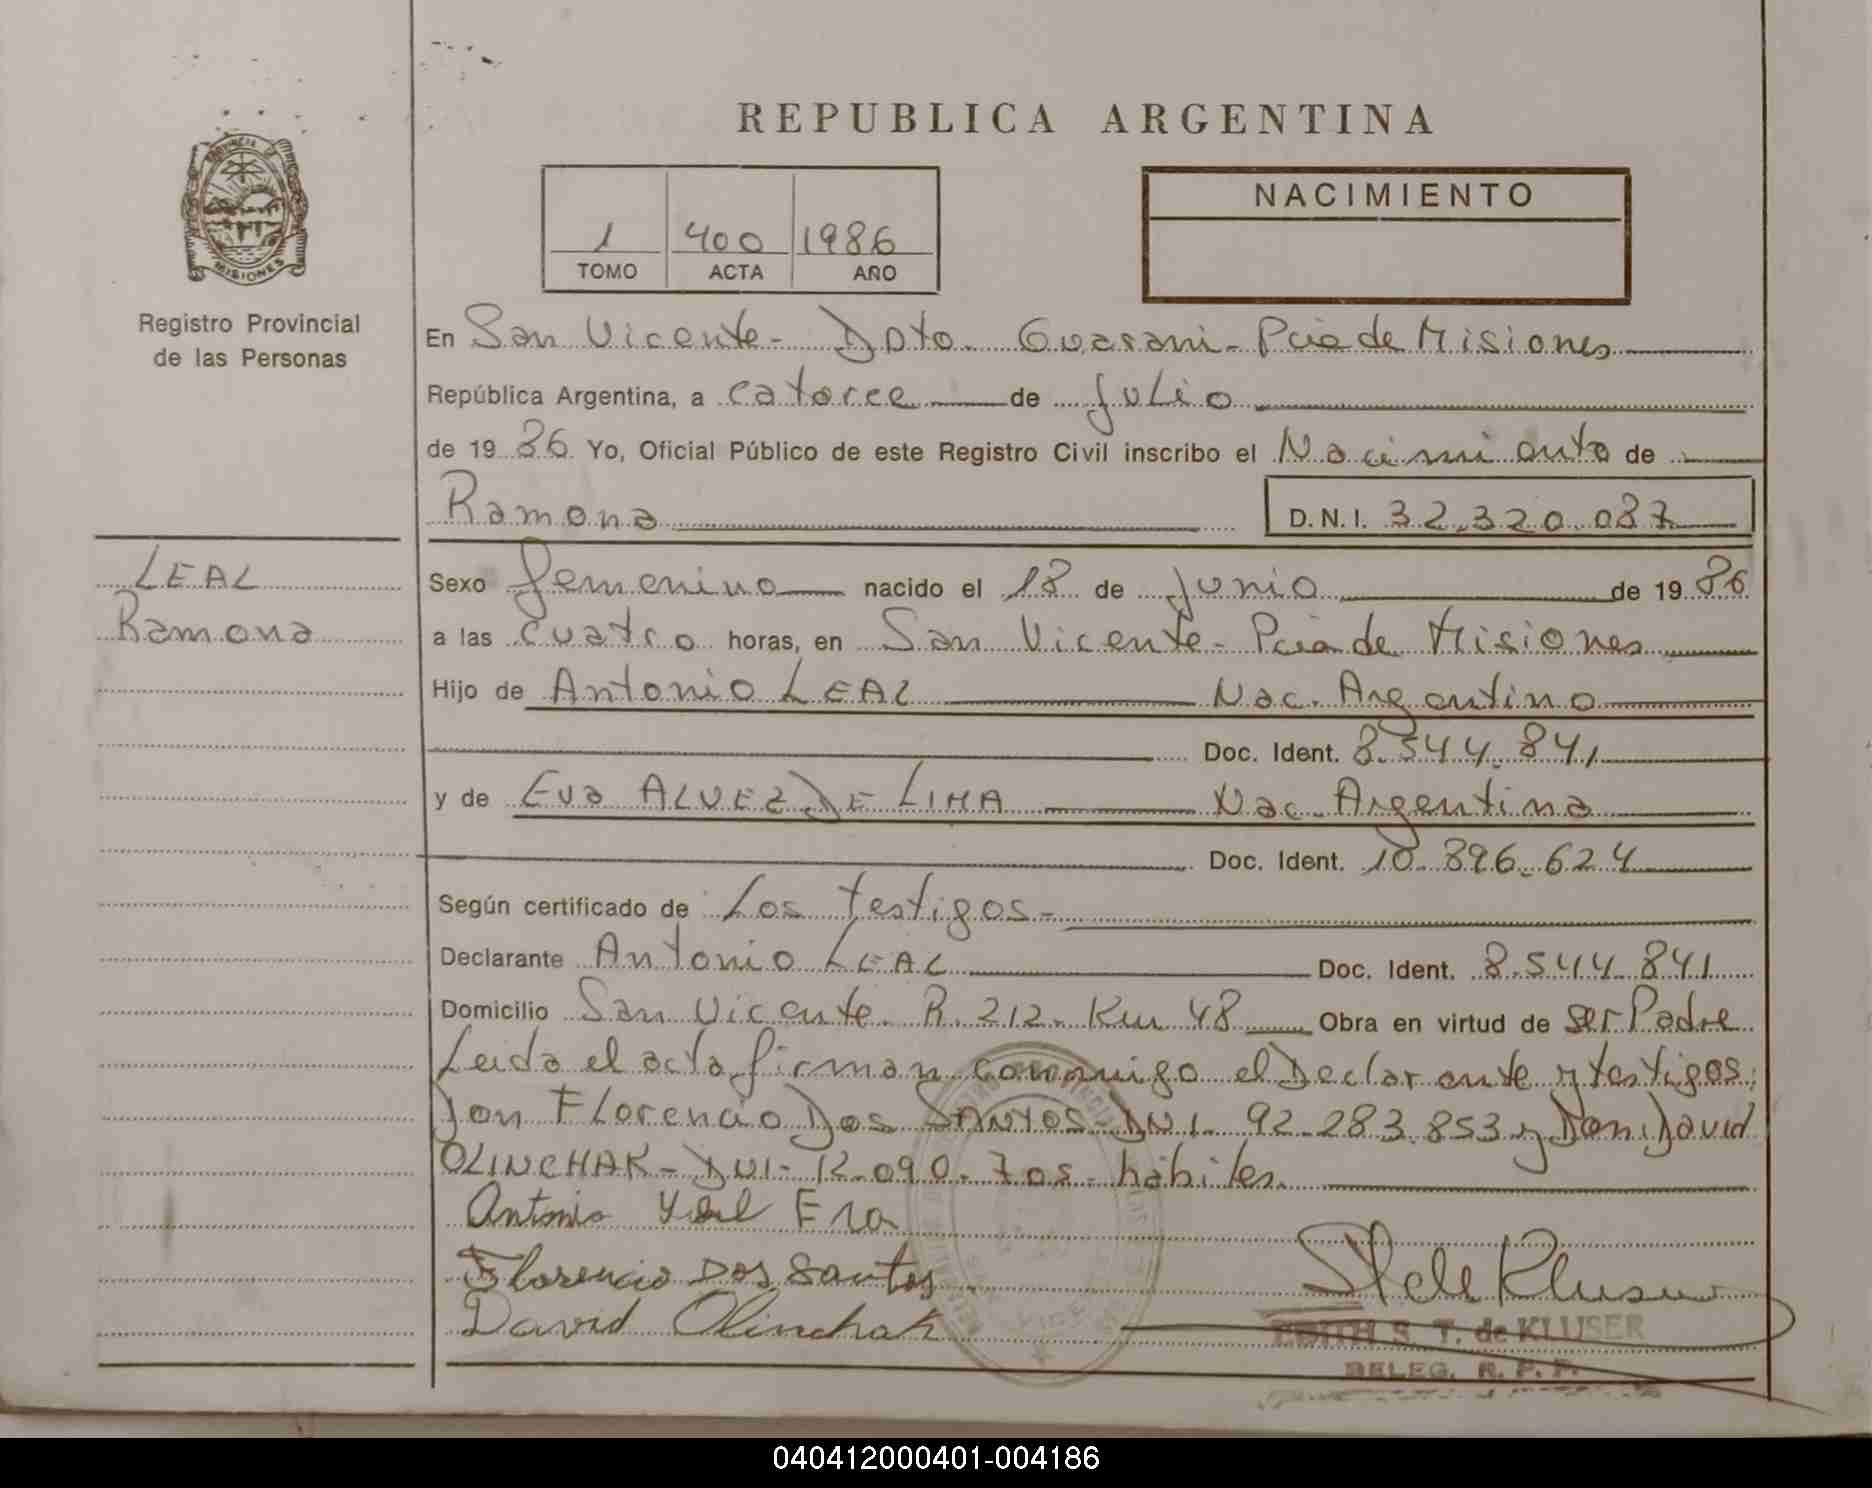 REPUBLICA ARGENTINA
PROVINCIA DE
MISIONES
Registro Provincial
de las Personas
1 400 1986
TOMO ACTA AÑO
NACIMIENTO
En San Vicente - Dpto. Guarani - Pcia de Misiones
República Argentina, a catorce de Julio
de 19 86 Yo, Oficial Público de este Registro Civil inscribo el Nacimiento de
Ramona D.N.I. 32.320.087
LEAL
Ramona
Sexo femenino nacido el 18 de Junio de 19 86
a las cuatro horas, en San Vicente - Pcia de Misiones
Hijo de Antonio LEAL Nac. Argentino
Doc. Ident. 8.544.841
y de Eva ALVEZ DE LIMA Nac. Argentina
Doc. Ident. 10.896.624
Según certificado de Los testigos -
Declarante Antonio LEAL Doc. Ident. 8.544.841
Domicilio San Vicente R. 212. Km 48 Obra en virtud de ser Padre
Leida el acta firman conmigo el Declarante y testigos:
Don Florencio Dos SANTOS - DNI. 92.283.853 y Don David
OLINCHAK - DNI - 12.090.705 - hábiles.
Antonio
Florencio Dos Santos
David Olinchak
EDITH S. T. de KLUSER
DELEG. R. P. P.
040412000401-004186